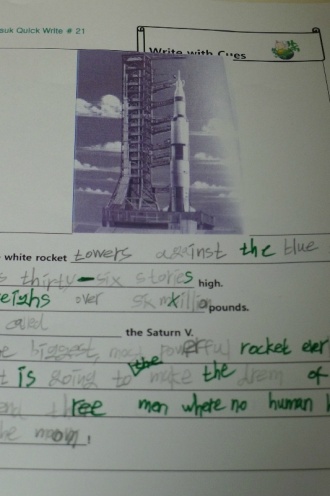 suk Quick Write # 21
Write with Cues
white rocket towers against the blue
s thirty-six stories high.
eighs over six million pounds.
called the Saturn V.
e biggest, most powerful rocket ever
t is going to make the drem of
ree men where no human
he moon.